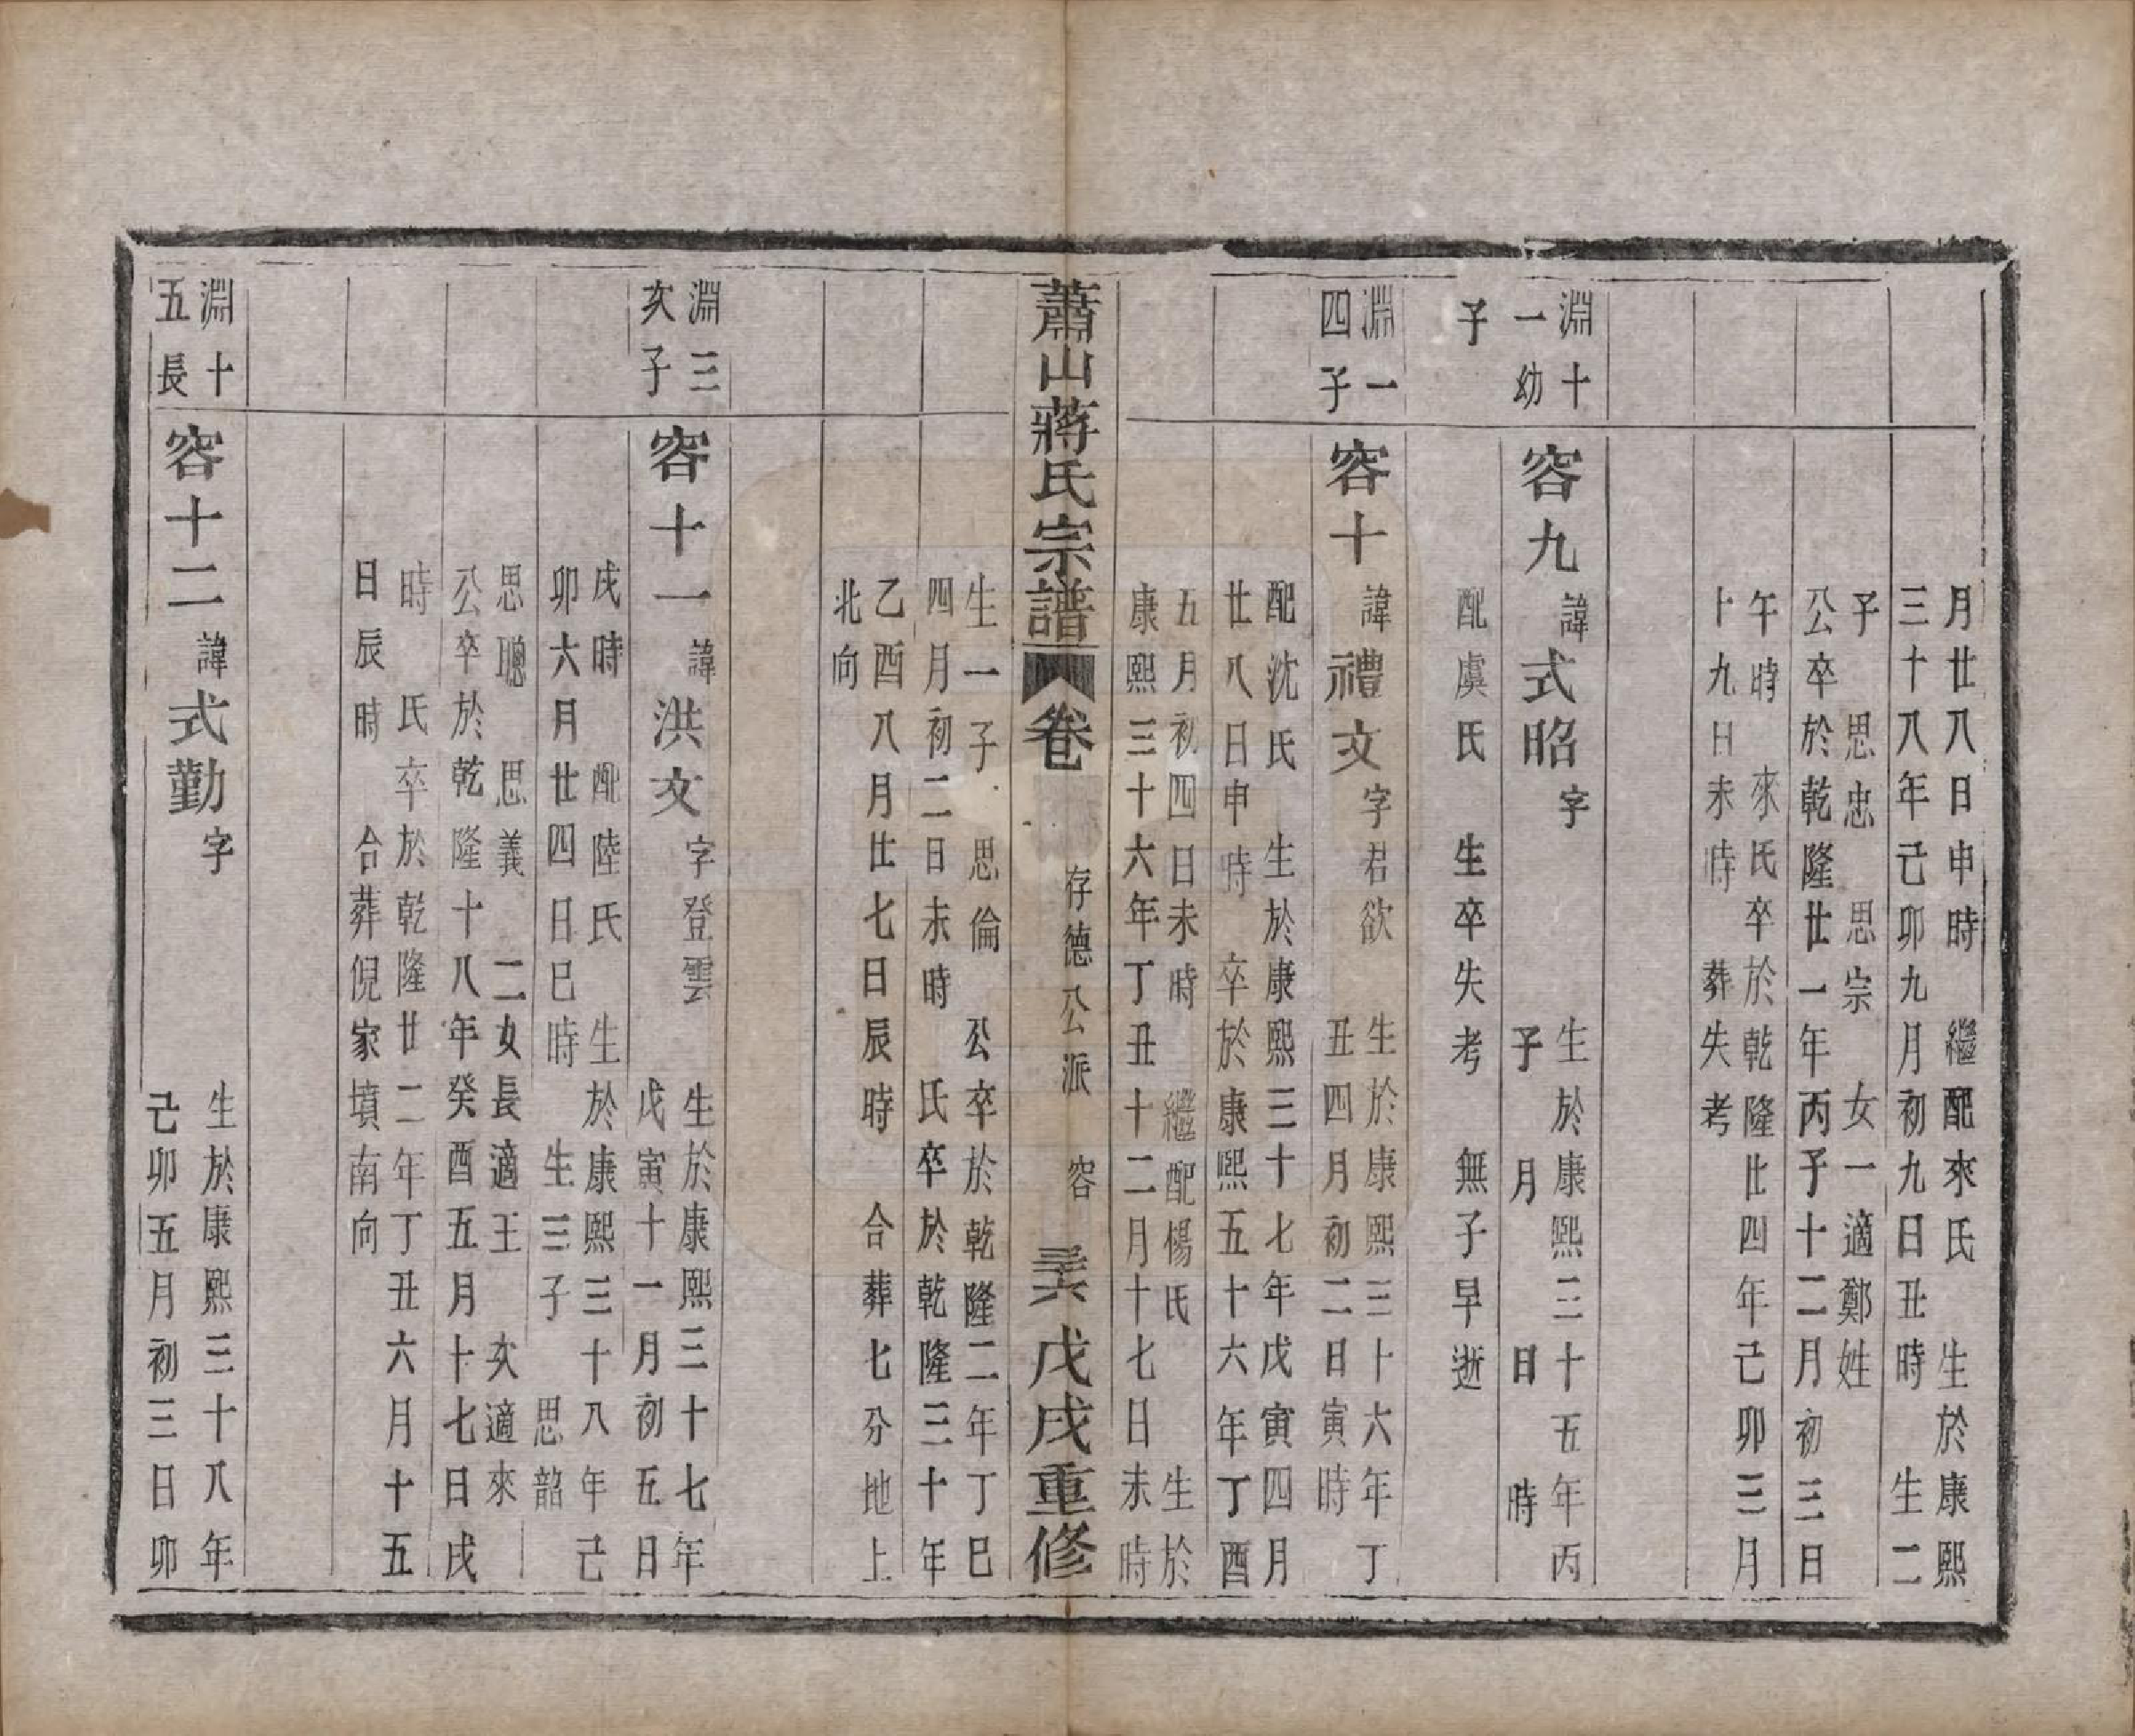 月廿八日申時　繼配來氏　生於康熙
三十八年己卯九月初九日丑時　生二
子　思忠　思宗　女一適鄭姓
公卒於乾隆廿一年丙子十二月初三日
午時　來氏卒於乾隆廿四年己卯三月
十九日未時　葬失考
淵十
一幼
子
容九
諱式昭字　生於康熙三十五年丙
子　月　日　時
配虞氏　生卒失考　無子早逝
淵一
四子
容十
諱禮文字君欲　生於康熙三十六年丁
丑四月初二日寅時
配沈氏　生於康熙三十七年戊寅四月
廿八日申時　卒於康熙五十六年丁酉
五月初四日未時　繼配楊氏　生於
康熙三十六年丁丑十二月十七日未時
蕭山蔣氏宗譜　卷　存德公派　容　三六　戊戌重修
生一子　思倫　公卒於乾隆二年丁巳
四月初二日未時　氏卒於乾隆三十年
乙酉八月廿七日辰時　合葬七分地上
北向
淵三
次子
容十一
諱洪文字登雲　生於康熙三十七年
戊寅十一月初五日
戌時　配陸氏　生於康熙三十八年己
卯六月廿四日巳時　生三子　思韶
思聰　思義　二女長適王　次適來
公卒於乾隆十八年癸酉五月十七日戌
時　氏卒於乾隆廿二年丁丑六月十五
日辰時　合葬倪家墳南向
淵十
五長
容十二
諱式勤字　生於康熙三十八年
己卯五月初三日卯